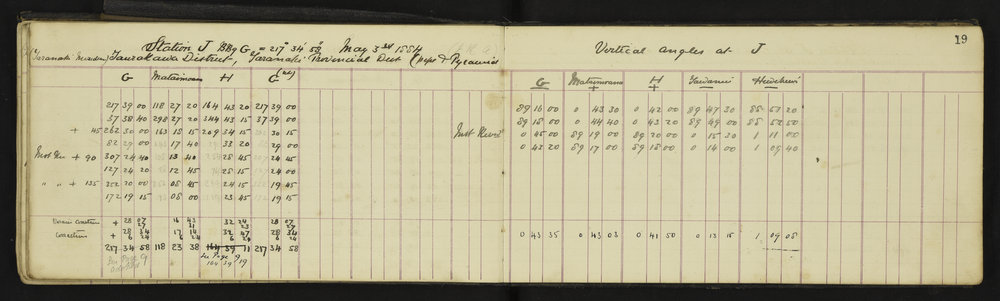 Station J BBg G = 217° 34' 58" May 3rd 1884
(Taranaki Meridian) District, Taranaki Provincial Dist
G Matai H G
217 39 00 118 27 20 164 43 20 217 39 00
37 38 40 298 27 20 344 43 15 37 39 00
+ 45 262 30 00 163 18 15 209 34 15 30 15
82 29 00 17 40 33 20 29 00
+ 90 307 24 40 13 40 28 45 24 45
127 24 20 12 45 28 15 24 00
" " + 135 352 20 00 08 45 24 15 19 45
172 19 15 08 00 23 45 19 15
+ 28 07 16 43 32 24 28 07
27 21 23 27
Correction + 28 34 17 14 32 47 28 34
6 24 6 24 6 24 6 24
217 34 58 118 23 38 164 39 11 217 34 58
See Page 9 See Page 9
164 39 19
Vertical angles at J
19
G H
89 16 00 0 43 30 0 42 00 89 47 30 88 53 20
89 18 00 0 44 40 0 43 20 89 49 00 88 52 50
Inst Revsd 0 45 00 89 19 00 89 20 00 0 15 30 1 11 00
0 43 20 89 17 00 89 18 00 0 14 00 1 09 40
0 43 35 0 43 03 0 41 50 0 13 15 1 09 05